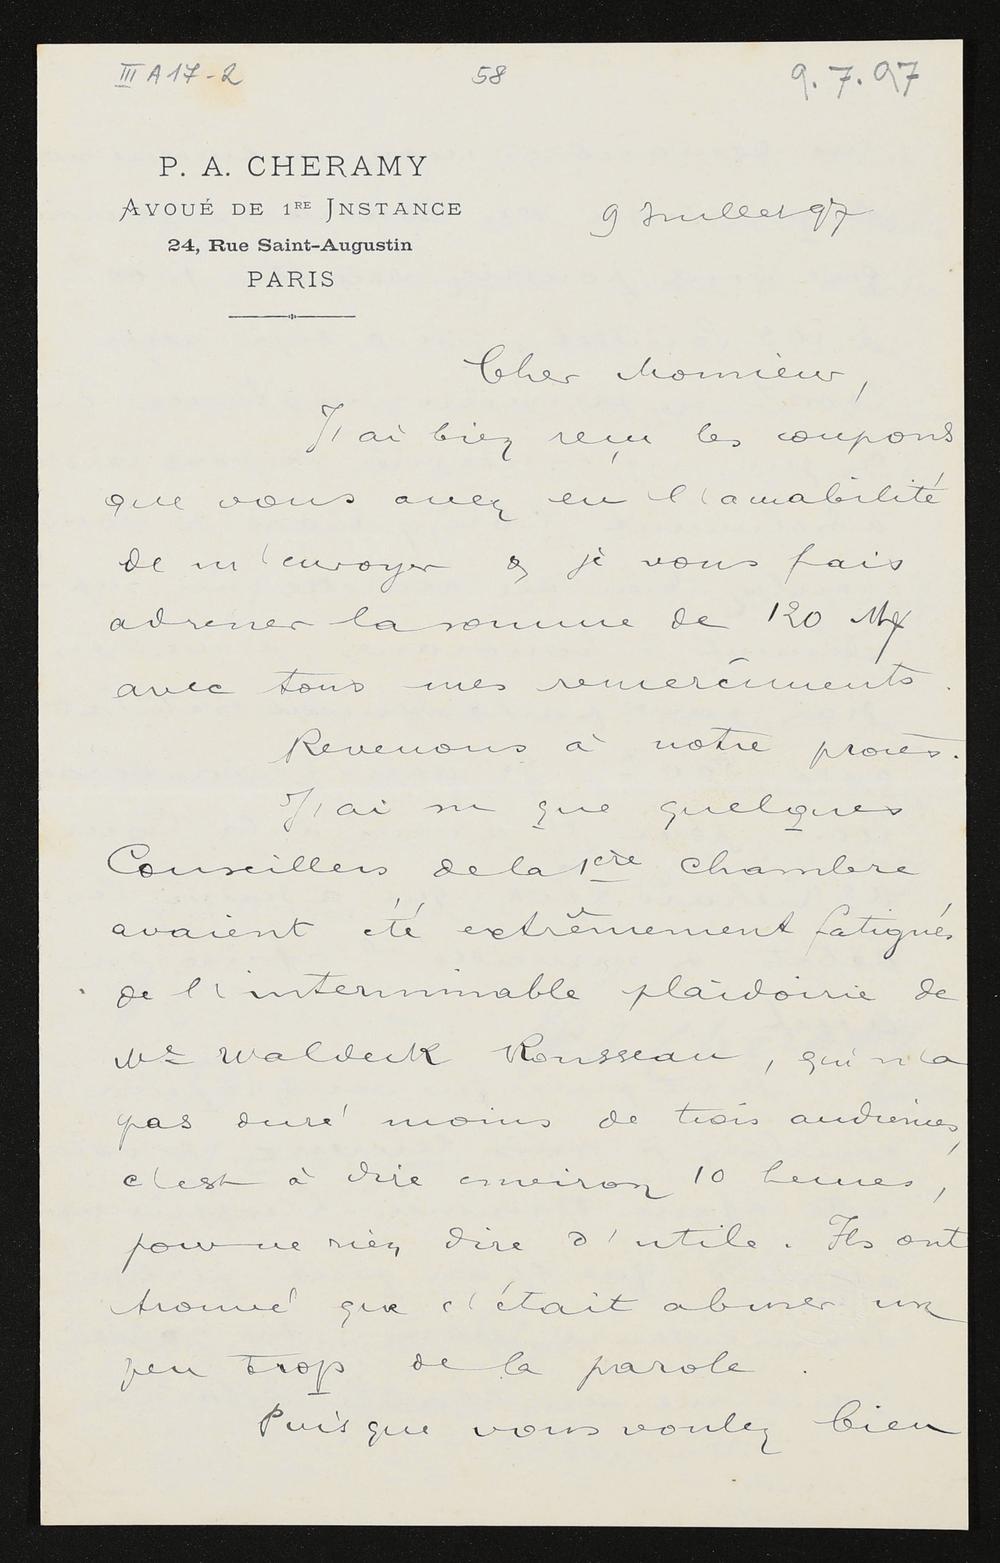 III A 17 - 2
58
9. 7. 97
P. A. CHERAMY
AVOUÉ DE 1RE INSTANCE
24, Rue Saint-Augustin
PARIS
9 Juillet 97
Cher Monsieur,
J'ai bien reçu les coupons
que vous avez eu l'amabilité
de m'envoyer & je vous fais
adresser la somme de 120 Mk
avec tous mes remerciments.
Revenons à notre procès.
J'ai su que quelques
Conseillers de la 1ère chambre
avaient été extrêmement fatigués
de l'interminable plaidoirie de
Me Waldeck Rousseau, qui n'a
pas duré moins de trois audiences,
c'est à dire environ 10 heures,
pour ne rien dire d'utile. Ils ont
trouvé que c'était abuser un
peu trop de la parole.
Puisque vous voulez bien